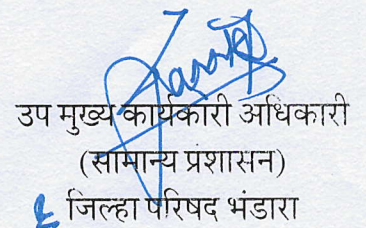 उप मुख्य कार्यकारी अधिकारी
(सामान्य प्रशासन)
जिल्हा परिषद भंडारा